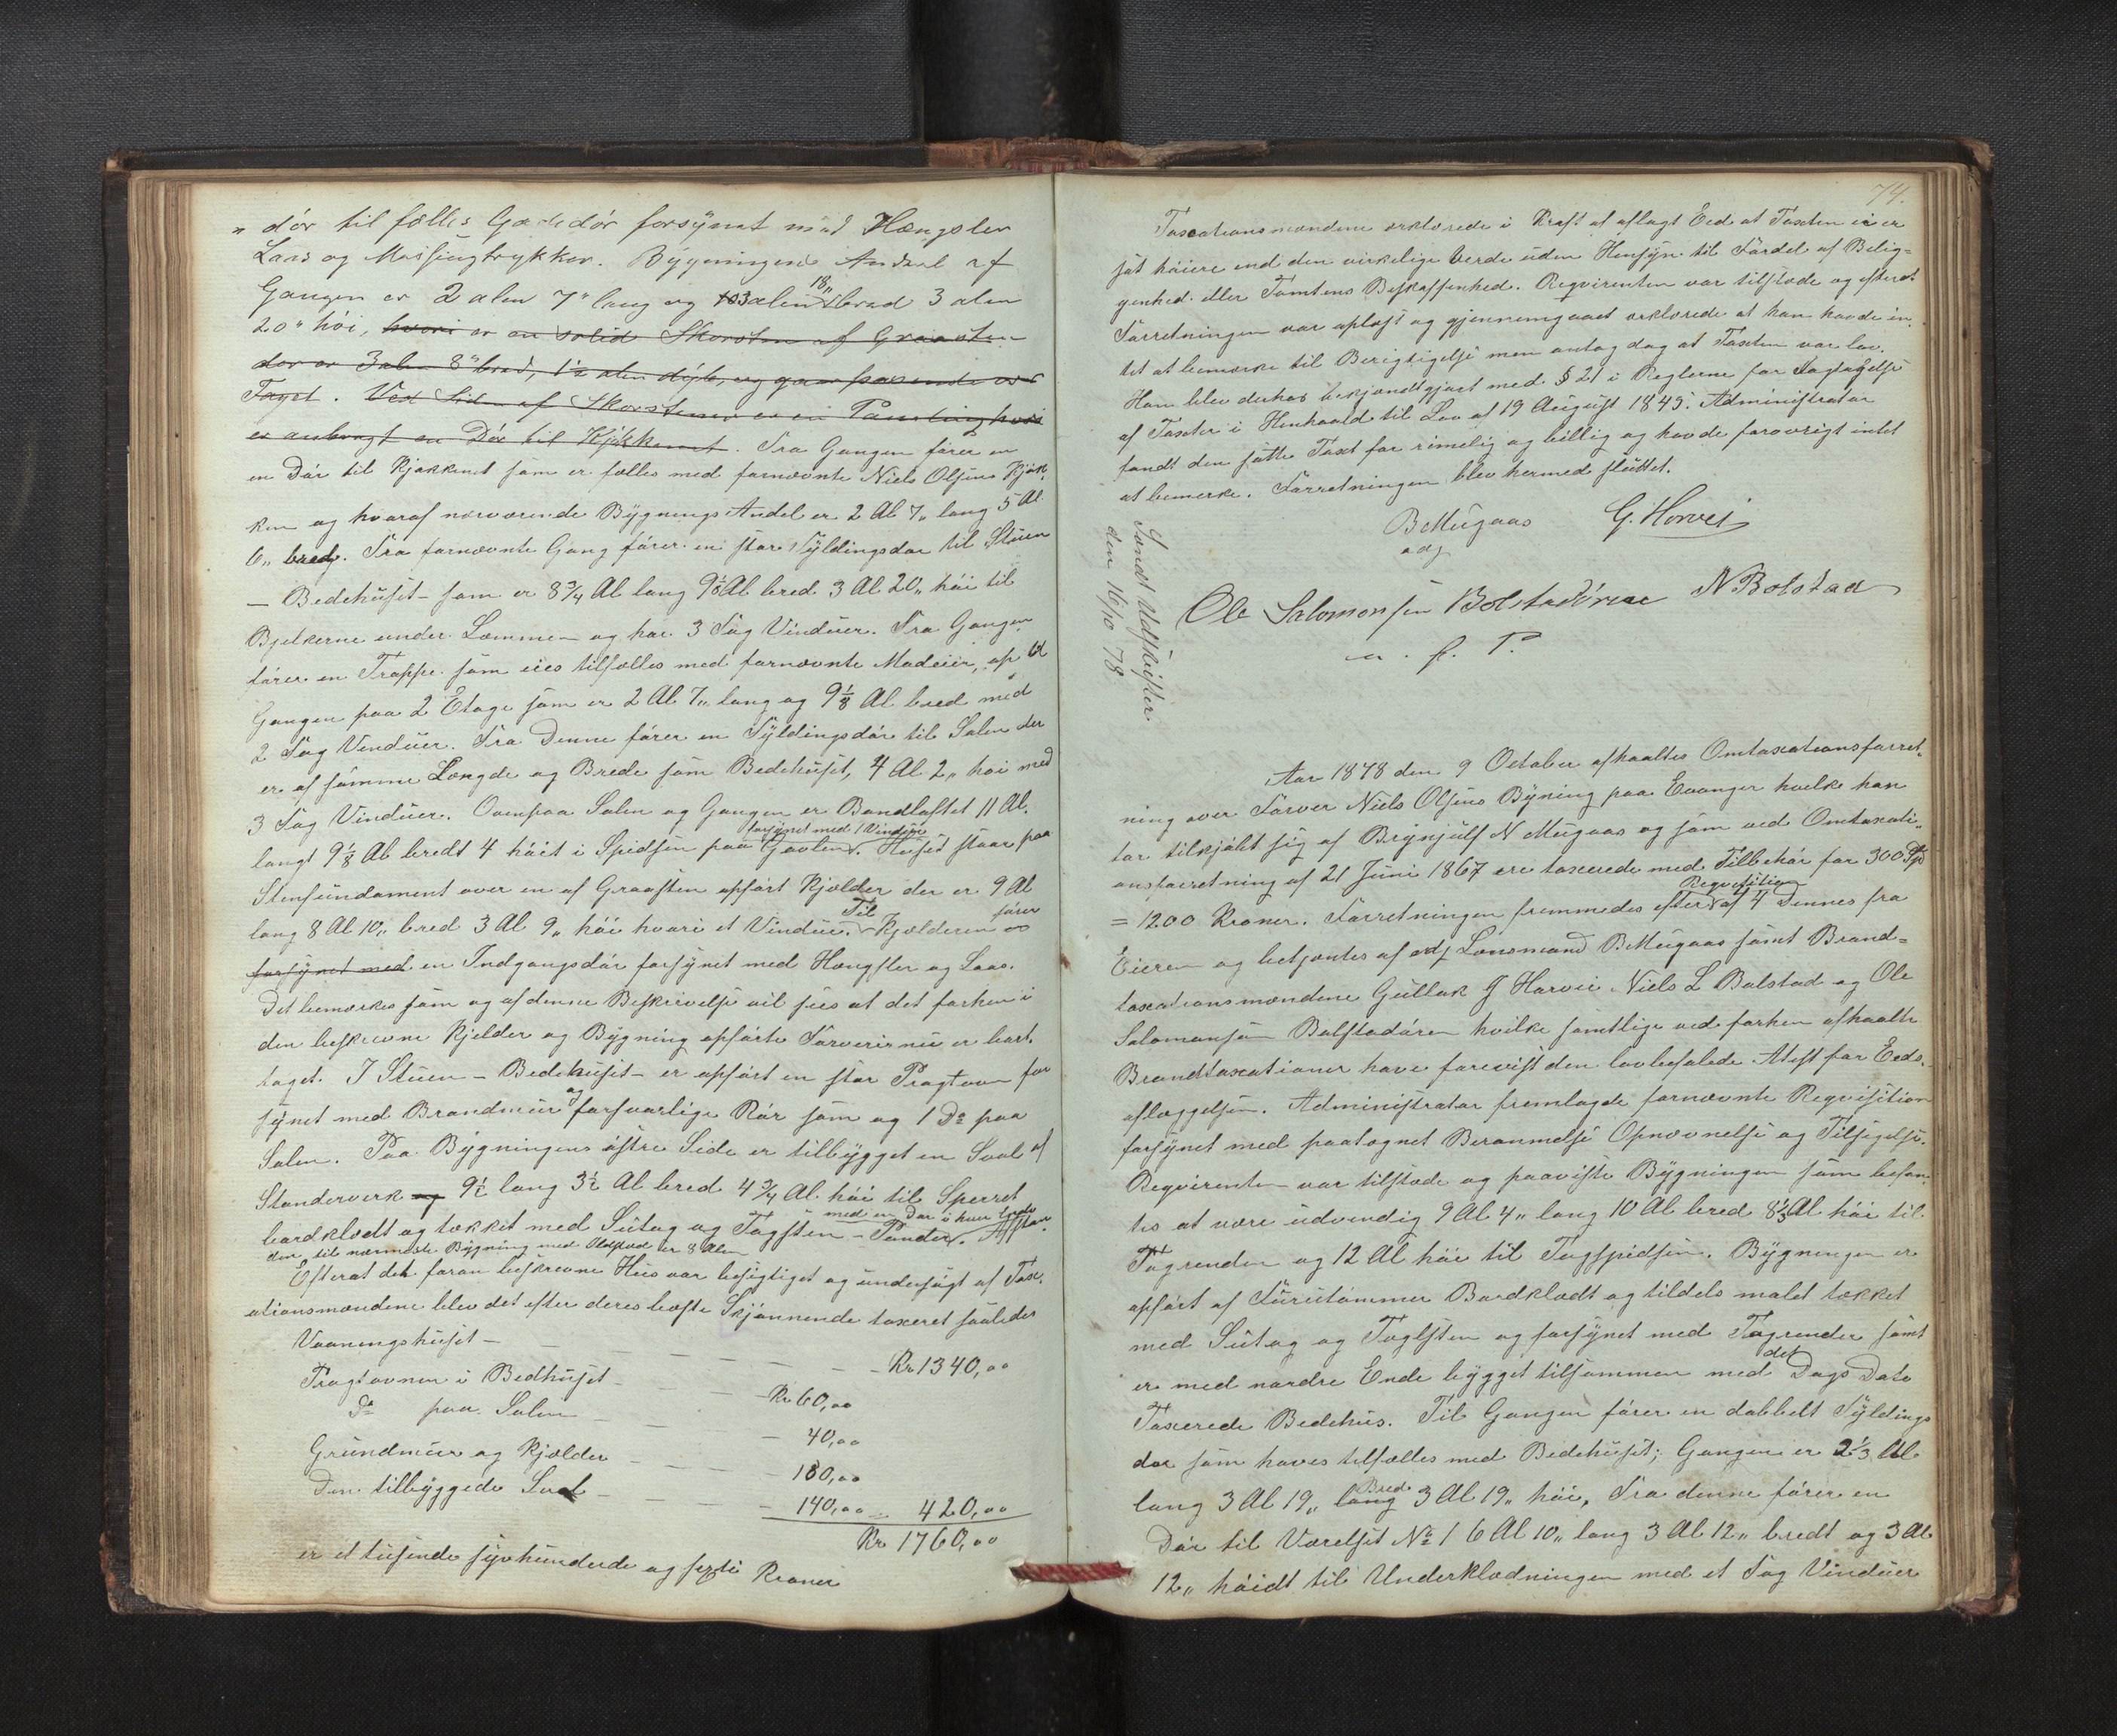 " dör til fælles Gadedör forsynet med Hængsler
Laas og Messingtrykker. Bygningens Andeel af
Gangen er 2 alen 7" lang og 3 alen 18" bred 3 alen
20" höi, hvori er en solid Skorsten af Graasten
der er 3 alen 8" bred, 1½ alen dyb, og gaar passende over
Taget. Ved Siden af Skorstenen er en Paneling hvori
er anbragt en Dör til Kjökkenet. Fra Gangen förer en
en Dör til Kjøkkenet som er fælles med fornævnte Niels Olsens Kjøk-
ken og hvoraf nærværende Bygnings Andel er 2 Al 7" lang 5 Al
6" bred. Fra fornævnte Gang fører en stor Fyldingsdør til Stuen
— Bedehuset — som er 8¾ Al lang 9⅛ Al bred 3 Al 20" høi til
Bjelkerne under Lemmen og har 3 Fag Vinduer. Fra Gangen
fører en Trappe som eies tilfælles med fornævnte Naboeier, op til
Gangen paa 2 Etage som er 2 Al 7" lang og 9⅛ Al bred med
2 Fag Vinduer. Fra Denne fører en Fyldingsdør til Salen der
er af samme Længde og Brede som Bedehuset, 4 Al 2" høi med
3 Fag Vinduer. Ovenpaa Salen og Gangen er Bandloftet 11 Al.
langt 9⅛ Al bredt 4 høit i Spidsen paa Gavlen forsynet med 1 Vindue. Huset staar paa
Stenfundament over en af Graasten opført Kjælder der er 9 Al
lang 8 Al 10" bred 3 Al 9" høi hvori et Vindue. Til Kjælderen fører
forsynet med en Indgangsdør forsynet med Hængsler og Laas.
Det bemærkes som og af denne Beskrivelse vil sees at det forhen i
den beskrevne Kjelder og Bygning opførte Farveri nu er bort-
taget. I Stuen — Bedehuset — er opført en stor Pragtovn for
synet med Brandmur og forsvarlige Rør som og 1 Do paa
Salen. Paa Bygningens østre Side er tilbygget en Sval af
Standerverk og 9½ lang 3½ Al bred 4¾ Al høi til Sperret
bordklædt og tækket med Sutag og Tagsten — Pander med en Dør i hver Ende. Afstan-
den til nærmeste Bygning med Ildsted er 8 Alen
Efterat det foran beskrevne Hus var besigtiget og undersøgt af Tax-
ationsmændene blev det efter deres bedste Skjønnende taxeret saaledes
Vaaningshuset — Kr 1340,00
Pragtovnen i Bedhuset — Kr 60,00
Do paa Salen — 40,00
Grundmur og Kjælder — 180,00
Den tilbyggede Sval — 140,00 = 420,00
Kr 1760,00
er et tusende syvhundrede og sexti Kroner
74.
Taxationsmændene erklærede i Kraft af aflagt Eed at Taxten ei er
sat høiere end den virkelige Verdi uden Hensyn til Fordel af Belig-
genhed eller Tomtens Beskaffenhed. Reqvirenten var tilstede og efterat
Forretningen var oplæst og gjennemgaaet erklærede at han havde in-
tet at bemærke til Berigtigelse men antog dog at Taxten var lav.
Han blev derhos bekjendtgjort med § 21 i Reglerne for Iagtagelse
af Taxter i Henhold til Lov af 19 August 1845. Administrator
fandt den satte Taxt for rimelig og billig og havde forøvrigt intet
at bemerke. Forretningen blev hermed sluttet.
B Mugaas G. Horvei
adj
Ole Salomonsen Bolstadören N Bolstad
m. p. P.
Sendt Udskrifter
den 16/10 78
Aar 1878 den 9 October afholdtes Omtaxationsforret-
ning over Farver Niels Olsens Bygning paa Evanger hvilke han
har tilkjøbt sig af Brynjulf N Mugaas og som ved Omtaxati-
onsforretning af 21 Juni 1867 ere taxerede med Tilbehør for 300 Spd
= 1200 Kroner. Forretningen fremmedes efter Reqvisition af 4 Dennes fra
Eieren og betjentes af adj Lensmand B Mugaas samt Brand-
taxationsmændene Gullak G Horvei Niels L Bolstad og Ole
Salomonsen Bolstadøren hvilke samtlige ved forhen afholdte
Brandtaxationer have forevist den lovbefalede Atest for Eeds-
aflæggelsen. Administrator fremlagde fornævnte Reqvisition
forsynet med paategnet Berammelse Opnævnelse og Tilsigelse.
Reqvirenten var tilstede og paaviste Bygningen som befan-
tes at være udvendig 9 Al 4" lang 10 Al bred 8⅓ Al høi til
Tagrenden og 12 Al høi til Tagspidsen. Bygningen er
opført af Furutømmer Bordklædt og tildels malet tækket
med Sutag og Taglsten og forsynet med Tagrender samt
er med nordre Ende bygget tilsammen med det Dags Dato
Taxerede Bedehus. Til Gangen fører en dobbelt Fyldings
dør som haves tilfælles med Bedehuset; Gangen er 2⅓ Al
lang 3 Al 19" lang Bred 3 Al 19" høi, Fra denne fører en
Dør til Værelset No 1 6 Al 10" lang 3 Al 12" bredt og 3 Al
12" høidt til Underklædningen med et Fag Vinduer